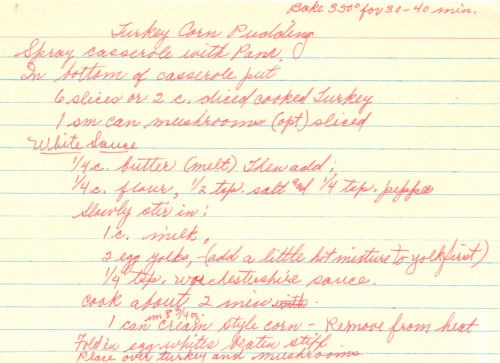 Bake 350° for 30-40 min.
Turkey Corn Pudding
Spray casserole with Pam.
In bottom of casserole put
6 slices or 2 c. diced cooked Turkey
1 sm can mushrooms (opt) sliced
White Sauce
1/4 c. butter (melt) Then add;
1/4 c. flour, 1/2 tsp. salt and 1/4 tsp. pepper
Slowly stir in:
1 c. milk,
2 egg yolks, (add a little hot mixture to yolk first)
1/4 tsp. worchestershire sauce.
cook about 2 min with.
1 can sm 8 3/4 oz. cream style corn - Remove from heat
Fold in egg whites beaten stiff
Place over turkey and mushrooms.